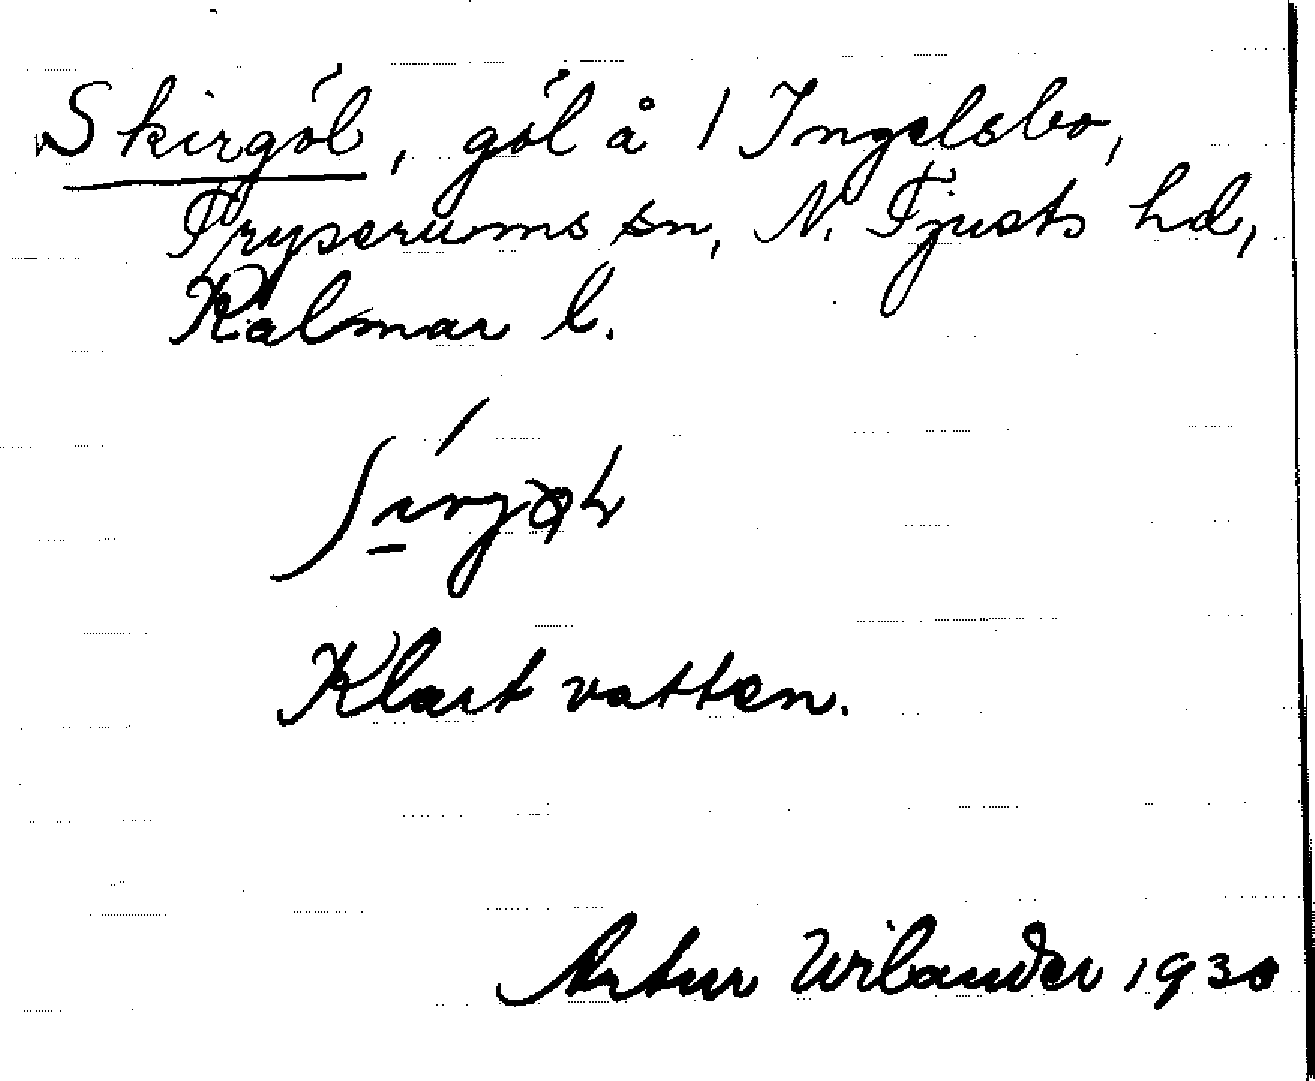 Skirgöl, göl å 1 Ingelsbo,
Tryserums sn, N. Tjusts hd,
Kalmar l.
Klart vatten.
Artur Wilander 1930